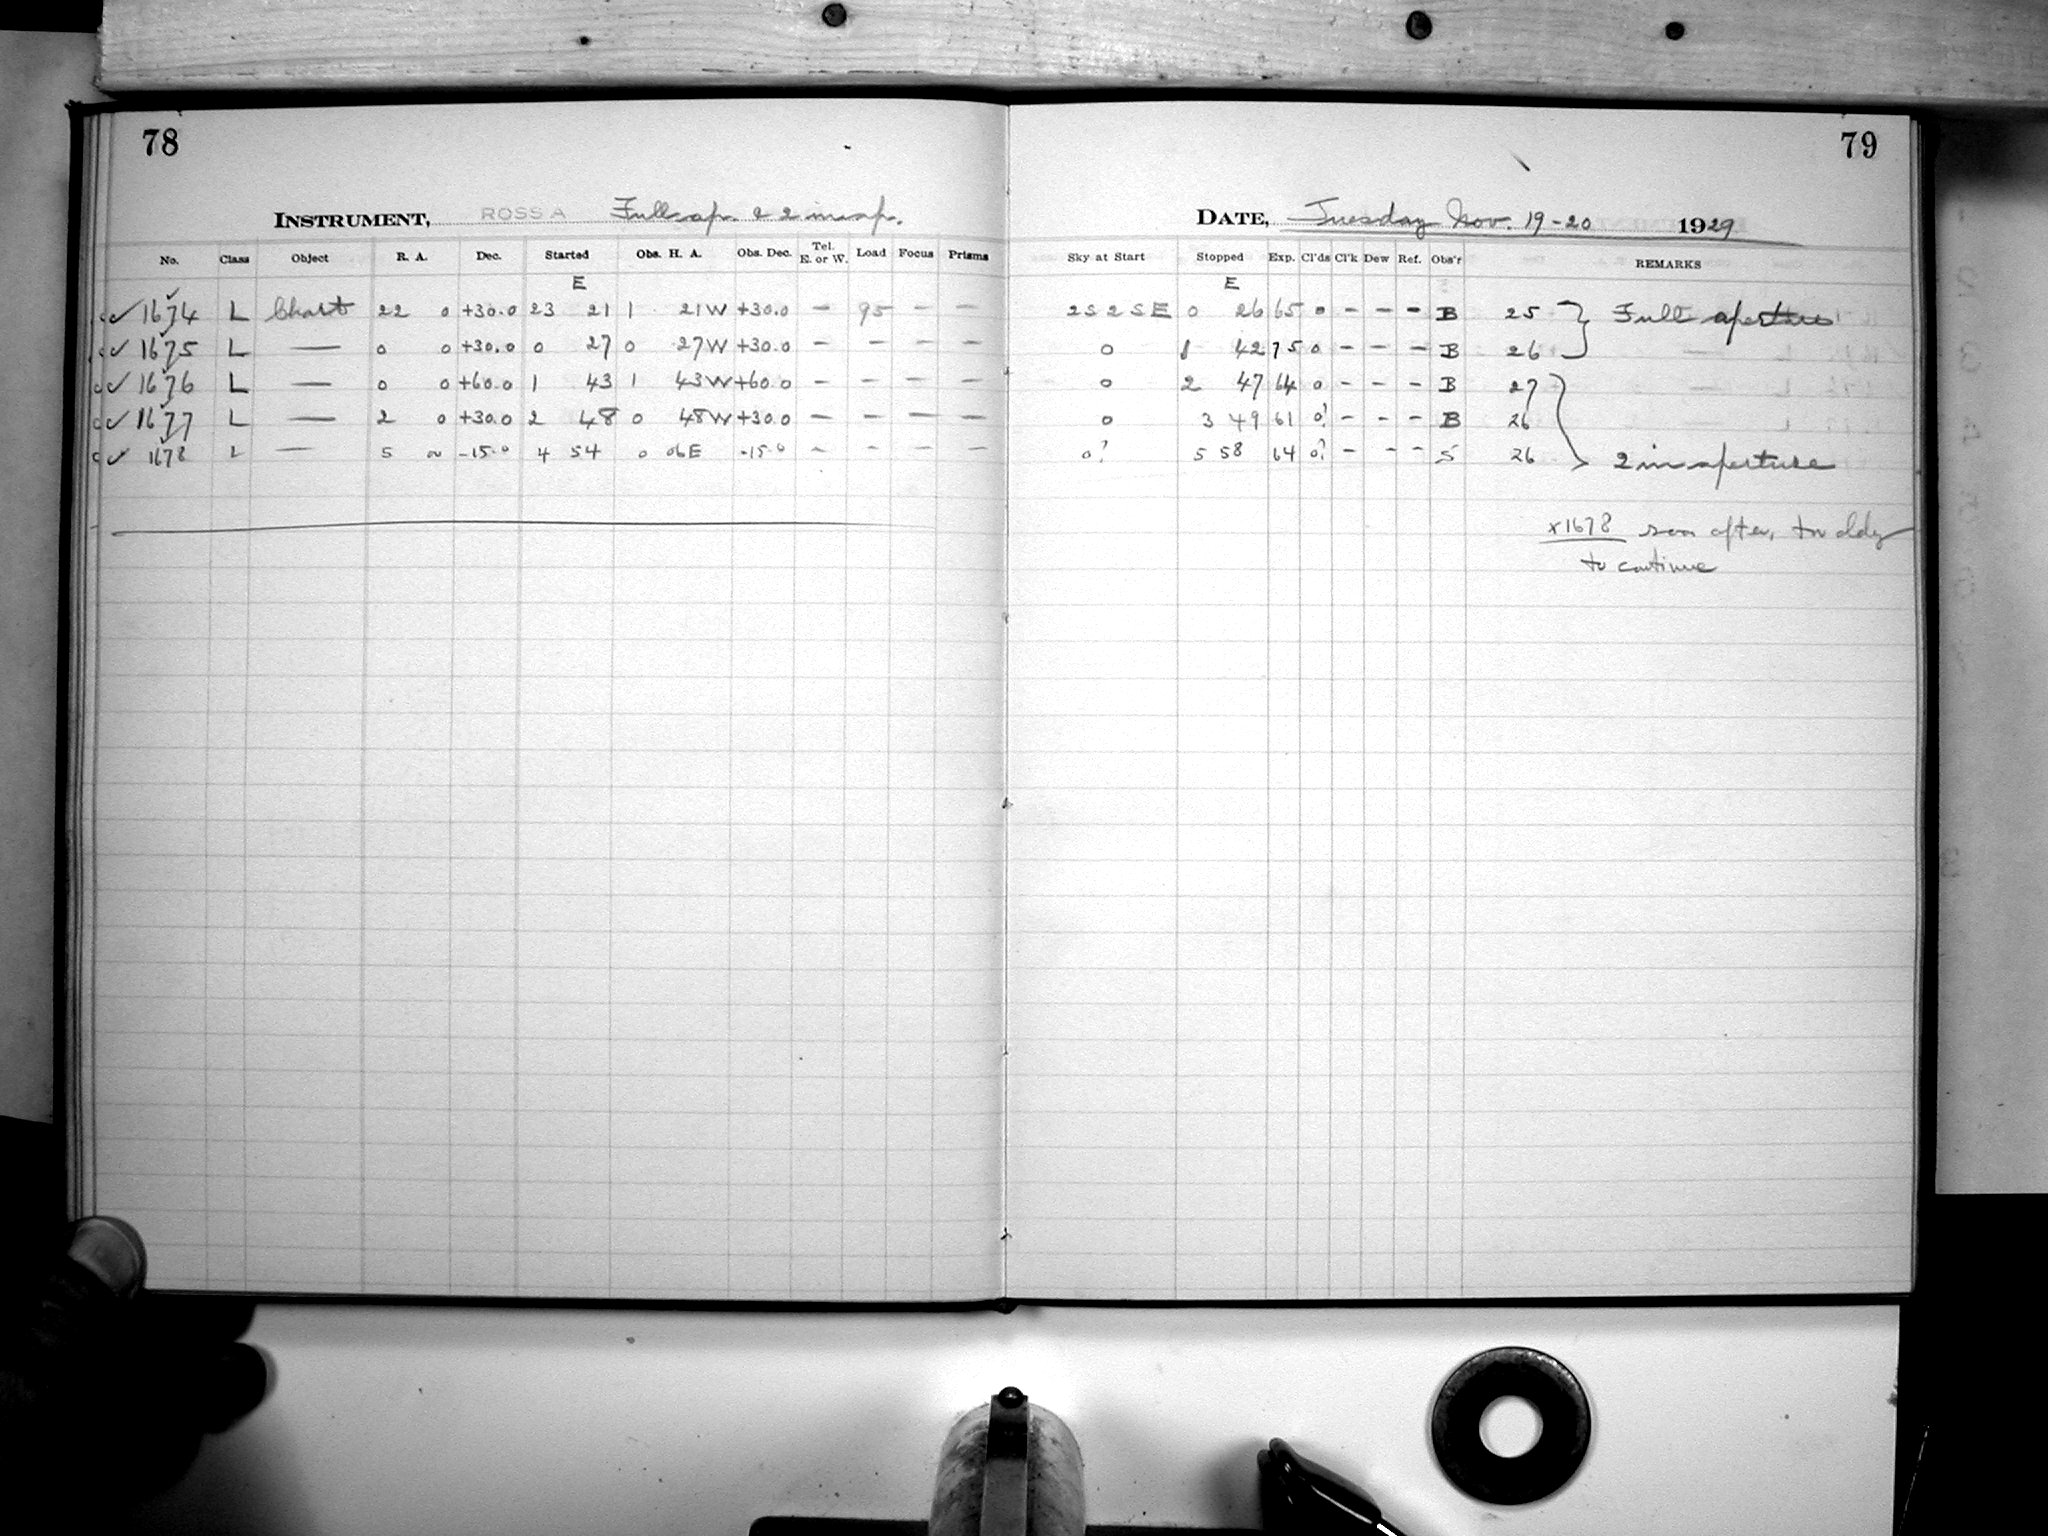 78
INSTRUMENT, ROSS A Full ap. & 2 in ap.
No. Class Object R. A. Dec. Started Obs. H. A. Obs. Dec. Tel. E. or W. Load Focus Prisms
E
✓ 1674 L Chart 22 0 +30.0 23 21 1 21W +30.0 — 95 — —
✓ 1675 L — 0 0 +30.0 0 27 0 27W +30.0 — — — —
✓ 1676 L — 0 0 +60.0 1 43 1 43W +60.0 — — — —
✓ 1677 L — 2 0 +30.0 2 48 0 48W +30.0 — — — —
✓ 1678 L — 5 0 -15.0 4 54 0 06E -15.0 — — — —
79
DATE, Tuesday Nov. 19-20 1929
Sky at Start Stopped Exp. Cl'ds Cl'k Dew Ref. Obs'r REMARKS
E
2S 2SE 0 26 65 0 - - - B 25 Full aperture
0 1 42 75 0 - - - B 26
0 2 47 64 0 - - - B 27
0 3 49 61 0? - - - B 26
0? 5 58 64 0? - - - S 26 2 in aperture
x1678 soon after, too cldy
to continue